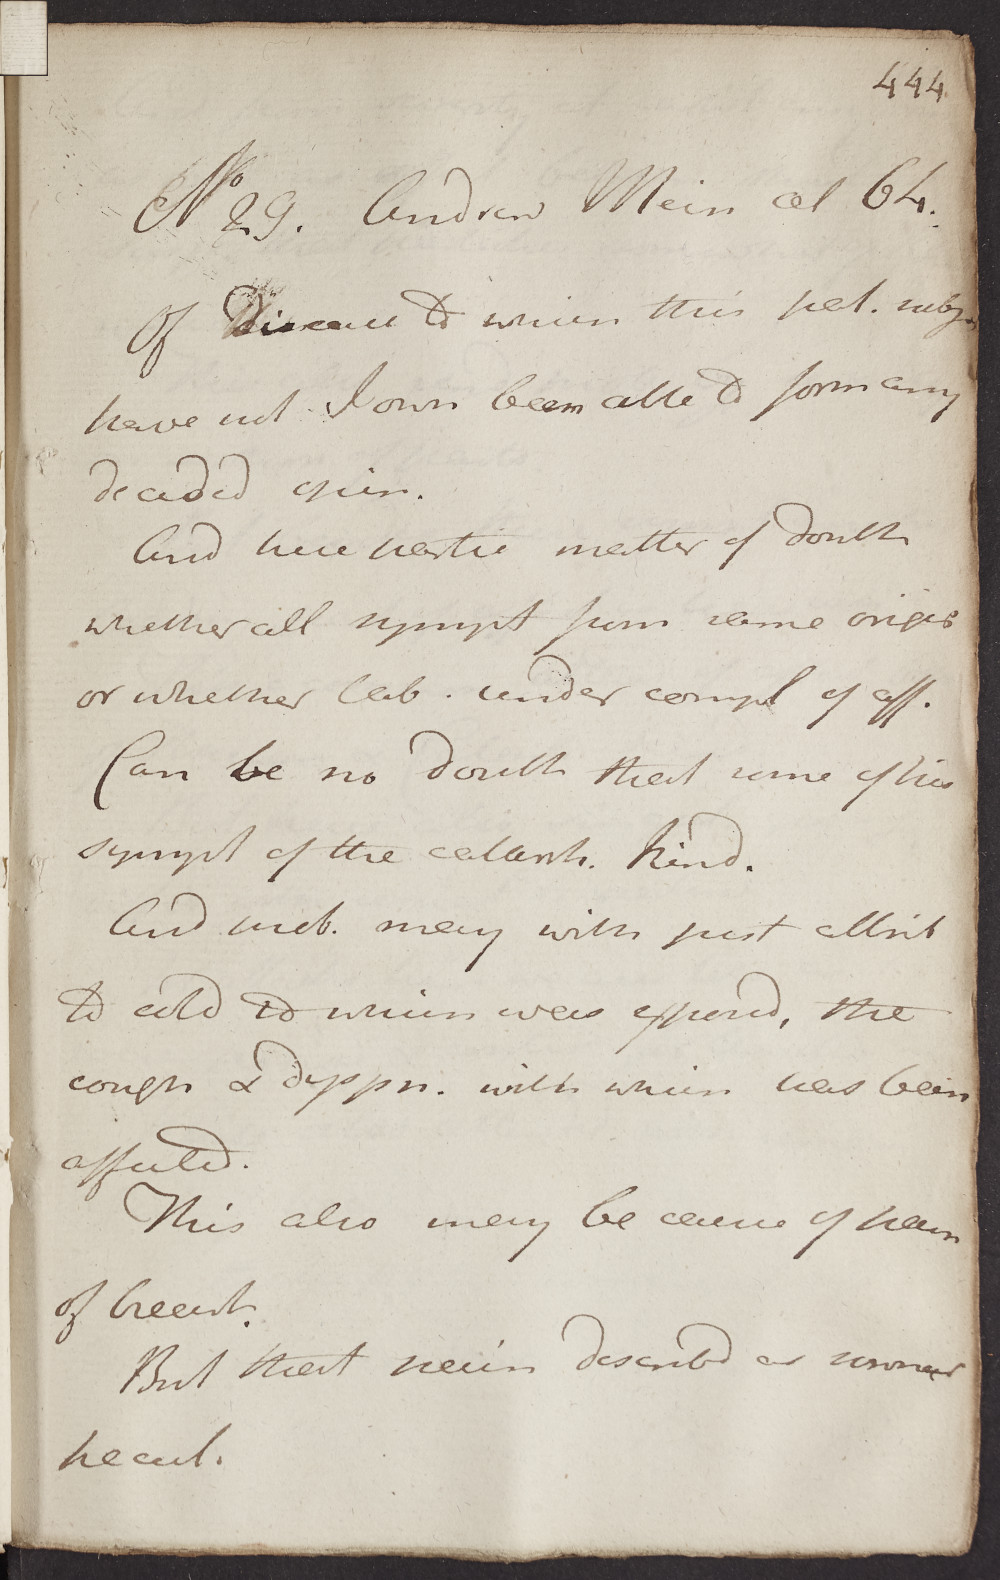 444
No 29. Andrew Mein aet 64.
Of Disease to which this pat. subj.
have not I own been able to form any
decided opin.
And here partic matter of doubt
whether all sympt from same origin
or whether lab. under compl of aff.
Can be no doubt that some of his
sympt of the catarrh. kind.
And prob. may with just attrib
to cold to which was exposed, the
cough & dyspn. with which has been
affected.
This also may be cause of pain
of breast.
But that pain described as round
heart.